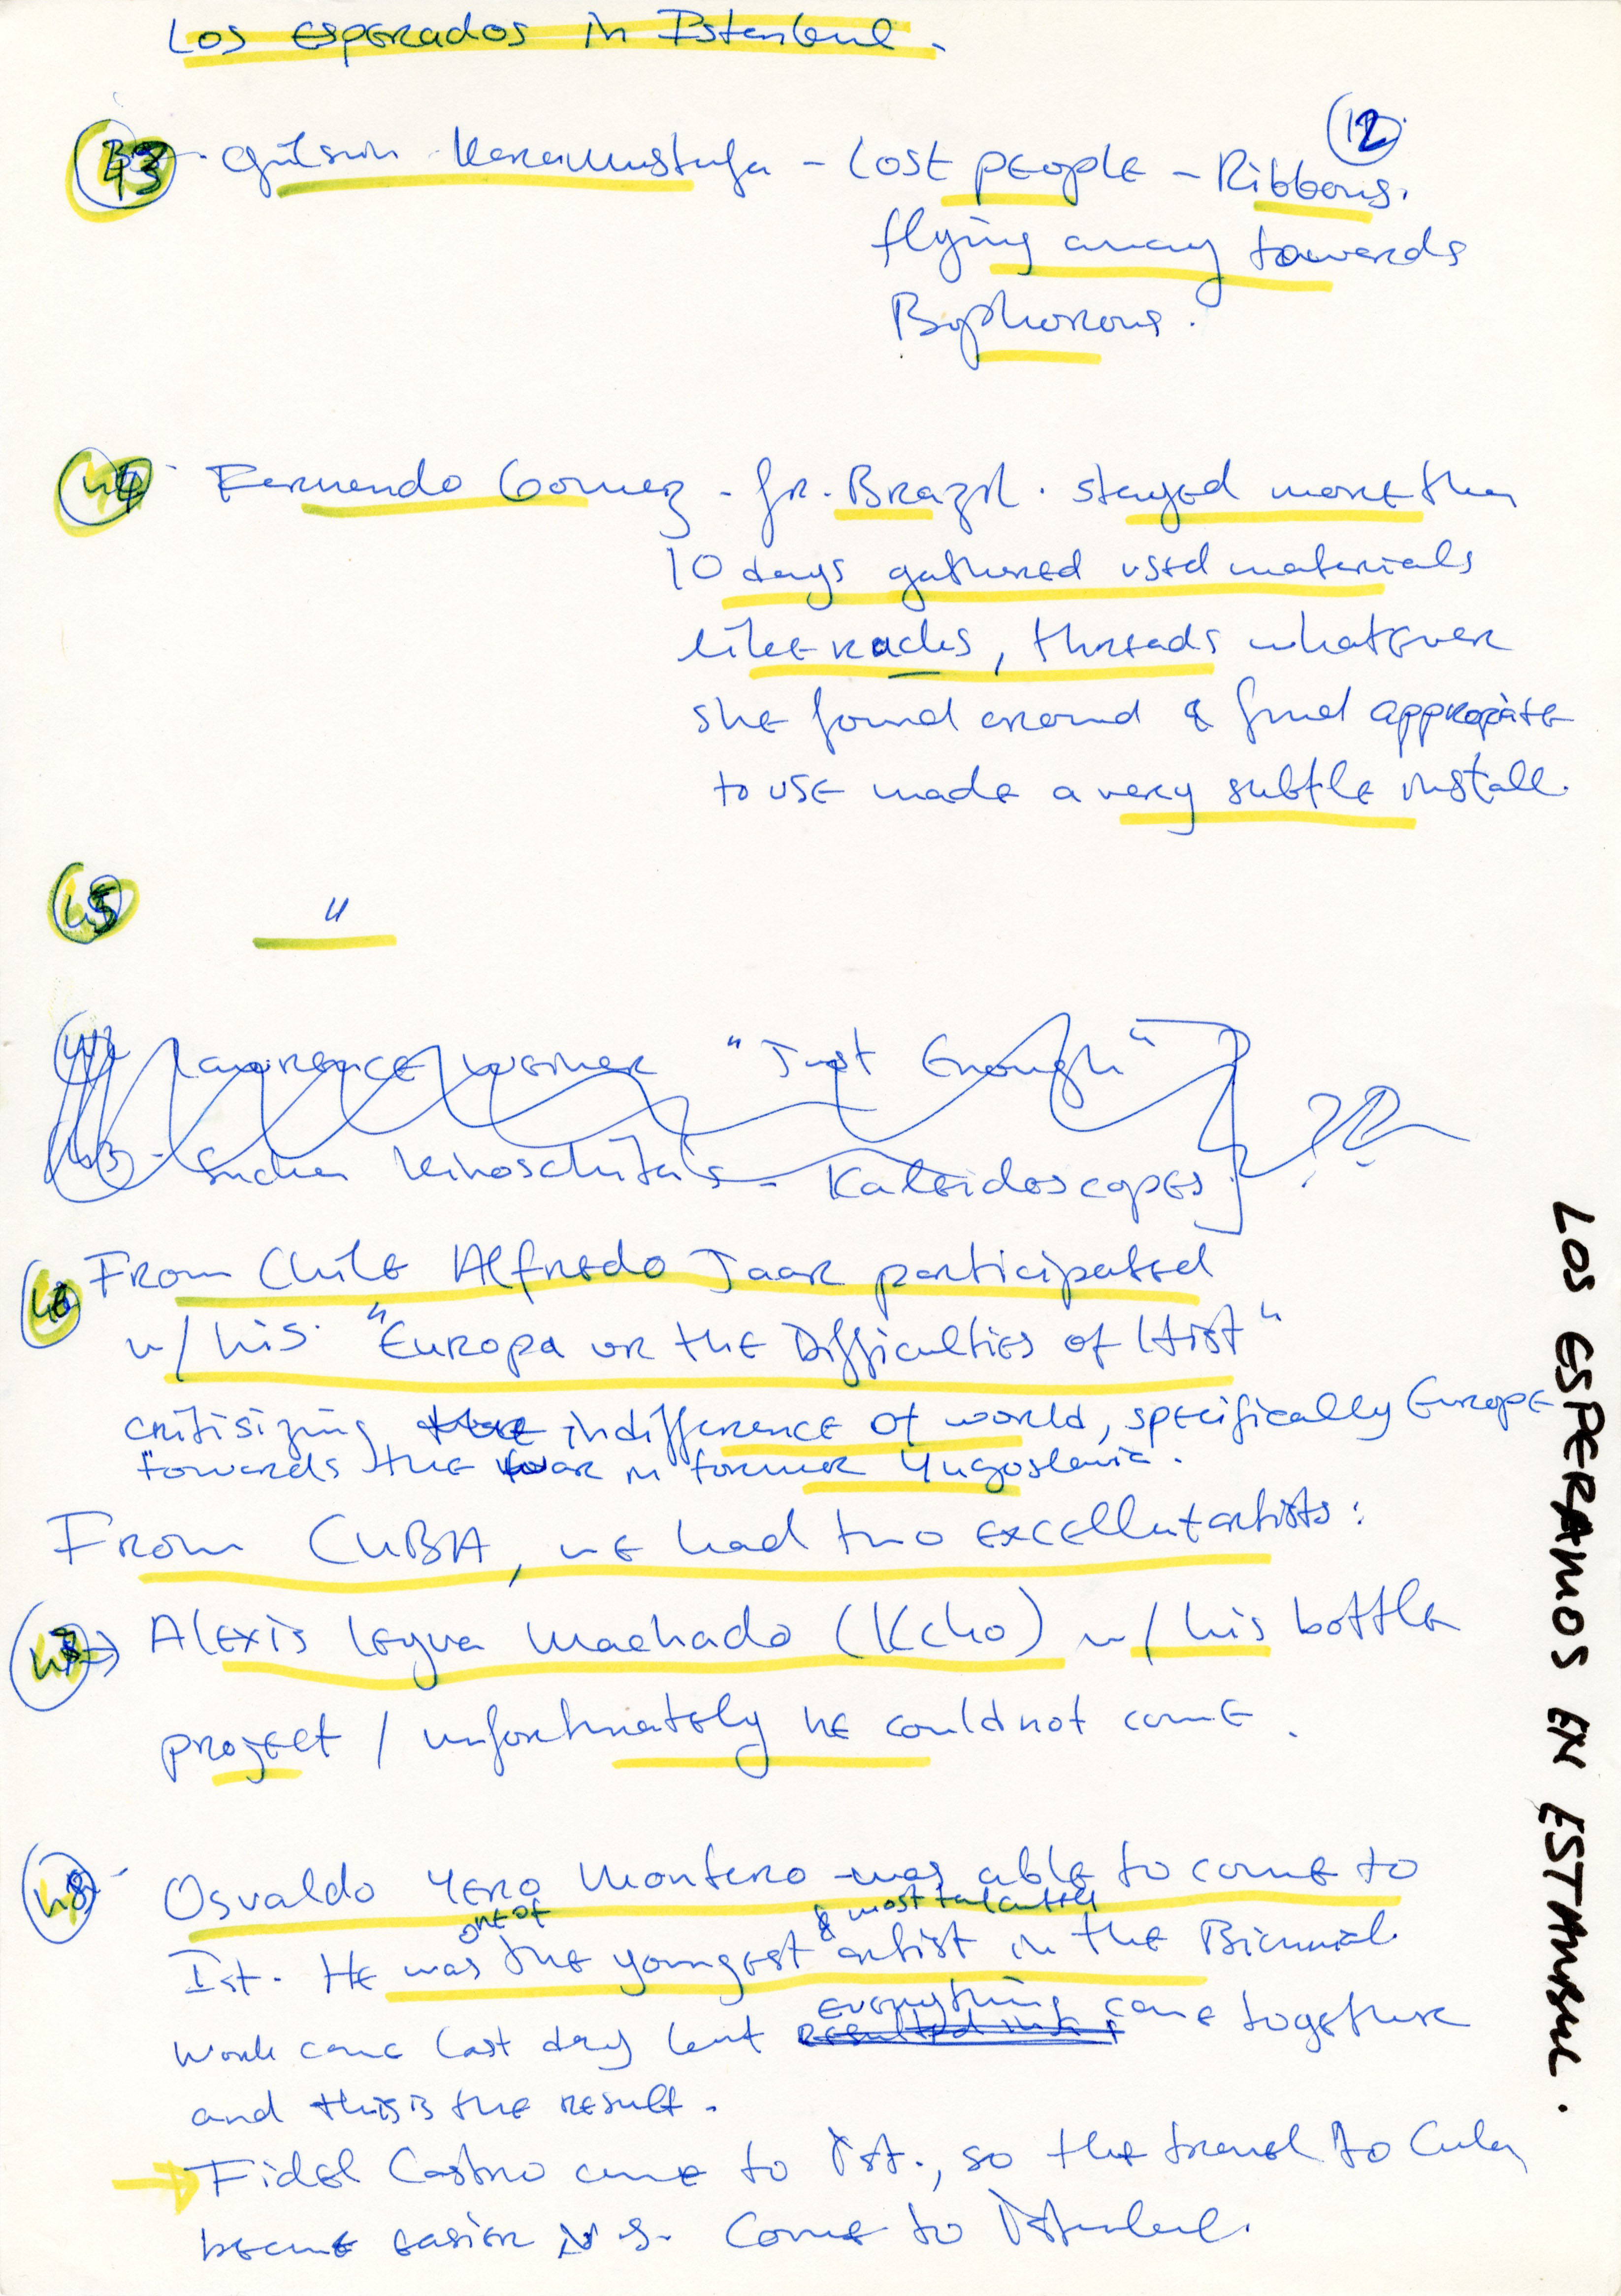 Los Esperados in Istanbul.
12
43 - Gülsün Karamustafa - Lost PEOPLE - Ribbons.
flying away towards
Bophorous.
44 - Fernando Gomez - fr. Brazil. stayed more than
10 days gathered used materials
like racks, threads whatever
she found around & find appropiate
to use made a very subtle install.
45 "
Lawrence Weiner "Just Enough"
Suchan Kinoschita's - Kaleidoscopes ??
46 From Chile Alfredo Jaar participated
w/ his "Europa or the Difficulties of Hist"
critisizing indifference of world, specifically Europe
towards the war in former Yugoslavia.
From CUBA, we had two excellent artists:
47 → Alexis Leyva Machado (Kcho) w/ his bottle
project / unfortunately he could not come.
48 - Osvaldo Yero Montero was able to come to
one of & most talented
Ist. He was the youngest artist in the Biennial.
everything came together
Work came last day but resulted
and this is the result.
→ Fidel Castro came to İst., so the travel to Cuba
became easier Come to İstanbul.
LOS ESPERAMOS EN ESTAMBUL.